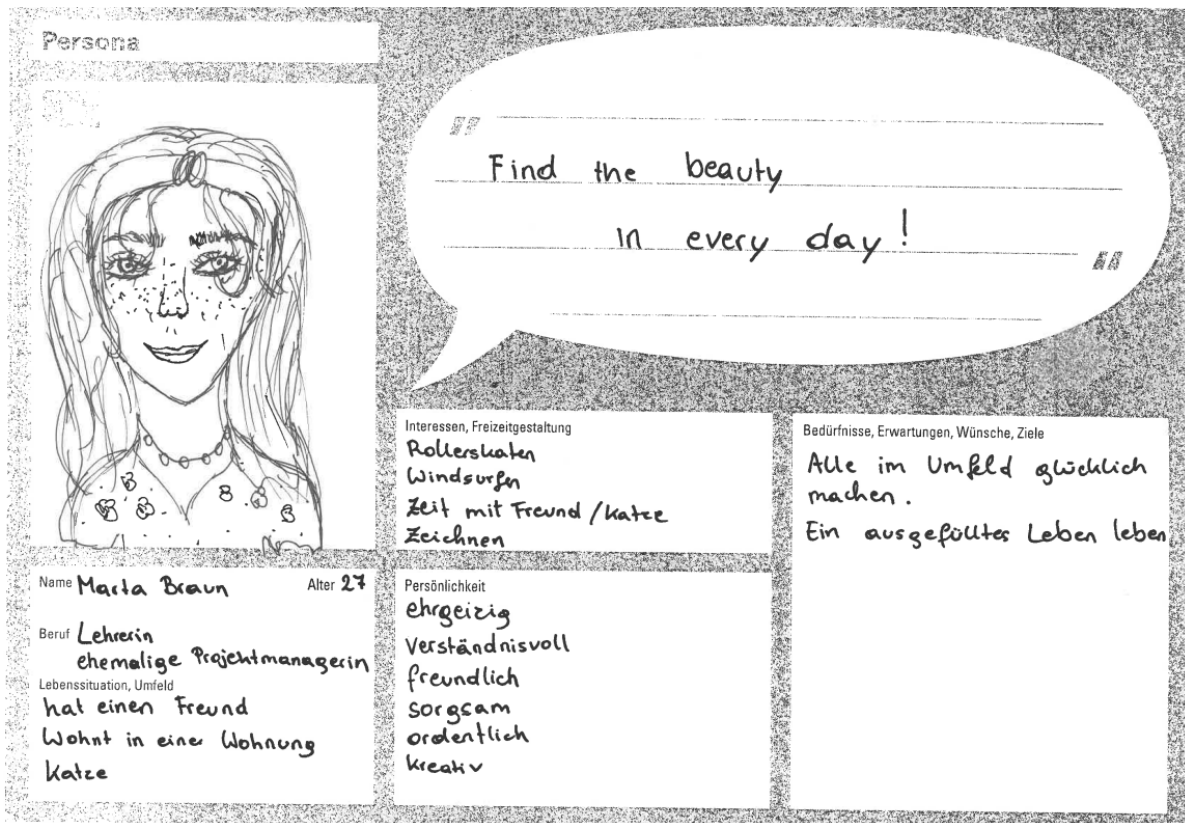 Persona
Find the beauty
in every day!
Interessen, Freizeitgestaltung
Rollerskaten
Windsurfen
Zeit mit Freund / Katze
Zeichnen
Bedürfnisse, Erwartungen, Wünsche, Ziele
Alle im Umfeld glücklich
machen.
Ein ausgefülltes Leben leben
Name Marta Braun Alter 27
Beruf Lehrerin
ehemalige Projektmanagerin
Lebenssituation, Umfeld
hat einen Freund
Wohnt in einer Wohnung
Katze
Persönlichkeit
ehrgeizig
verständnisvoll
freundlich
sorgsam
ordentlich
kreativ